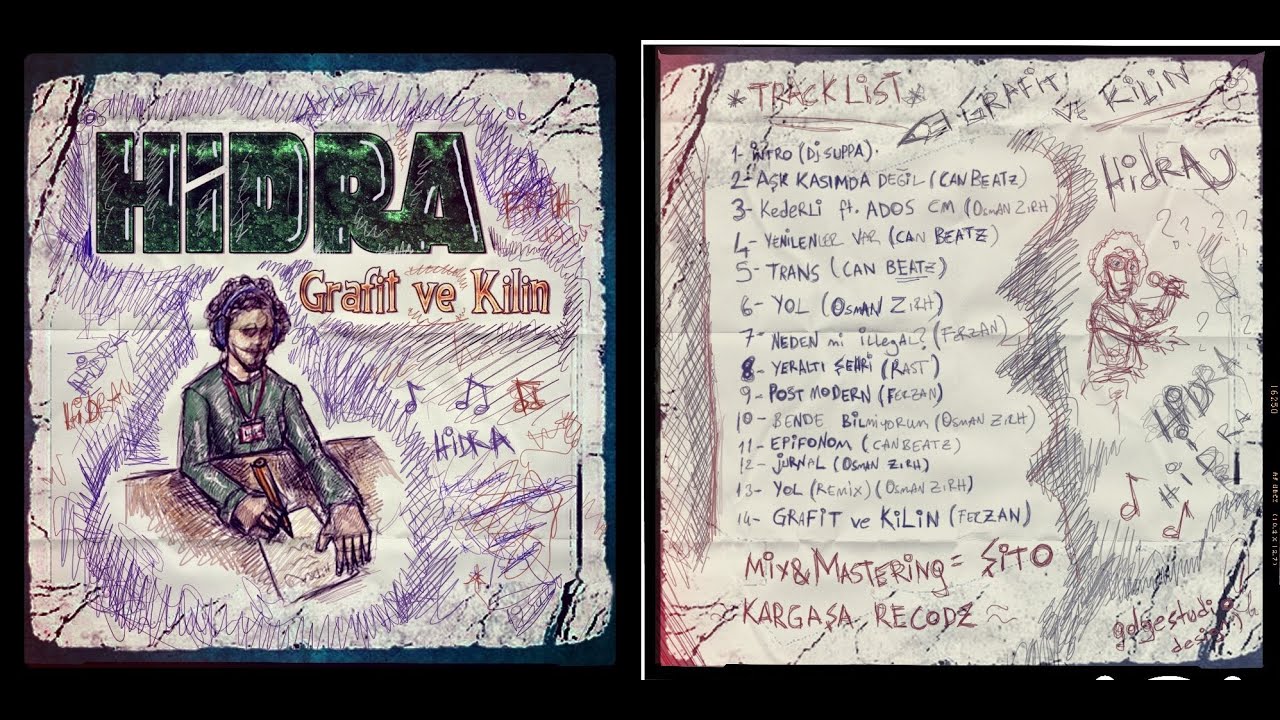 HiDRA
06
HiDRA
Grafit ve Kilin
HiDRA
HiDRA
HiDRA
*TRACK LIST*
GRAFiT VE KiLiN
HiDRA
1- iNTRO (Dj SUPPA).
2- AŞK KASIMDA DEĞiL (CAN BEATZ)
3- KEDERLi ft. ADOS CM (OSMAN ZIRH)
4- YENiLENLER VAR (CAN BEATZ)
5- TRANS (CAN BEATZ)
6- YOL (OSMAN ZIRH)
7- NEDEN mi illegal? (FERZAN)
8- YERALTI ŞEHRi (RAST)
9- POST MODERN (FERZAN)
10- BENDE BiLMiYORUM (OSMAN ZIRH)
11- EPiFONOM (CANBEATZ)
12- JURNAL (OSMAN ZIRH)
13- YOL (REMiX) (OSMAN ZIRH)
14- GRAFiT ve KiLiN (FERZAN)
HiDRA
HiDRA
Mix&MASTERiNG = ŞiTO
~ KARGAŞA RECODZ ~
16250